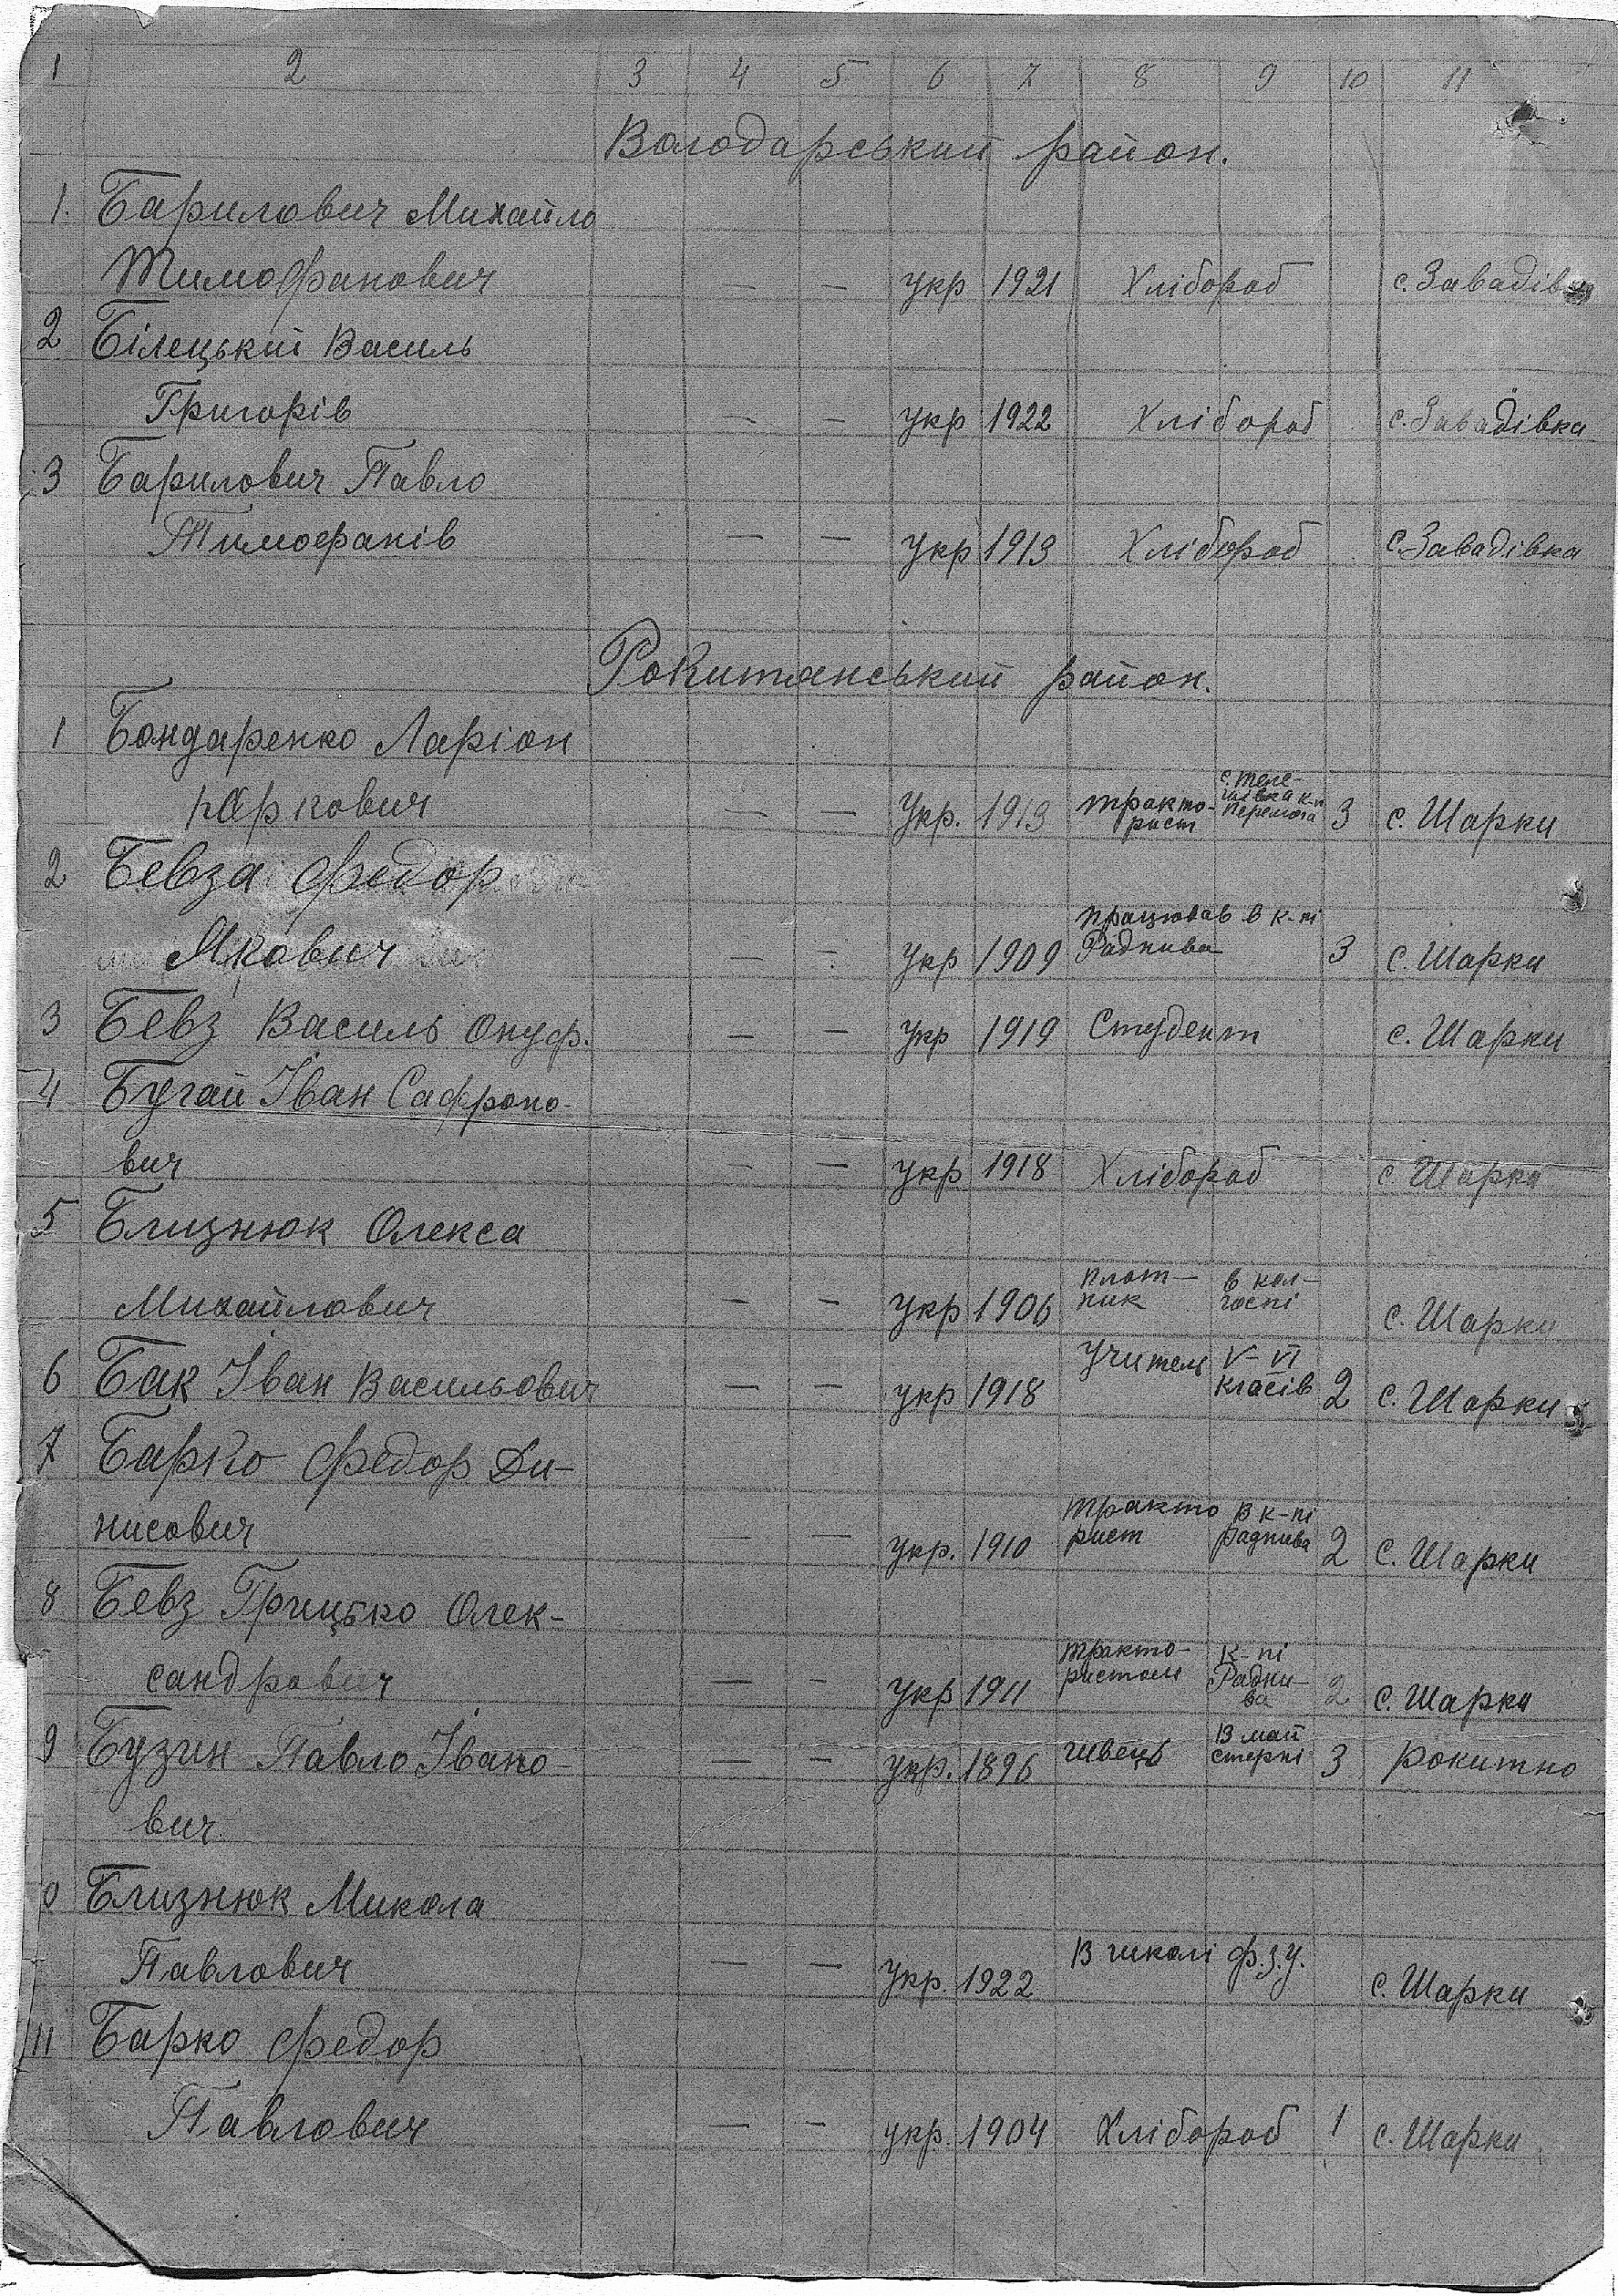 1 2 3 4 5 6 7 8 9 10 11
Володарський район.
1. Барилович Михайло
Тимофанович — — укр 1921 Хлібороб с. Завадівка
2 Білецький Василь
Григорів — — укр 1922 Хлібороб с. Завадівка
3 Барилович Павло
Тимофанів — — укр 1913 Хлібороб с. Завадівка
Рокитянський район.
1 Бондаренко Ларіон
с. Теле-
Маркович — — Укр. 1913 тракто- шівка к-п 3 с. Шарки
рист Перемога
2 Бевза Федор
працював в к-пі
Якович — — укр 1909 Раднива 3 с. Шарки
3 Бевз Василь Онуф. — — укр 1919 Студент с. Шарки
4 Бугай Іван Сафроно-
вич — — укр 1918 Хлібороб с Шарки
5 Близнюк Олекса
плот- в кол-
Михайлович — — укр 1906 ник госпі с. Шарки
6 Бак Іван Васильович — — укр 1918 Учитель V-VI класів 2 с. Шарки
7 Барко Федор Ди-
тракто в к-пі
нисович — — укр. 1910 рист Раднива 2 с. Шарки
8 Бевз Грицько Олек-
тракто- к-пі
сандрович — — укр 1911 ристом Радни- 2 с. Шарки
ва
9 Бузин Павло Івано- — — укр. 1896 швець В май стерні 3 Рокитно
вич
0 Близнюк Микола
Павлович — — укр. 1922 В школі ф.з.у. с. Шарки
11 Барко Федор
Павлович — — укр. 1904 Хлібороб 1 с. Шарки